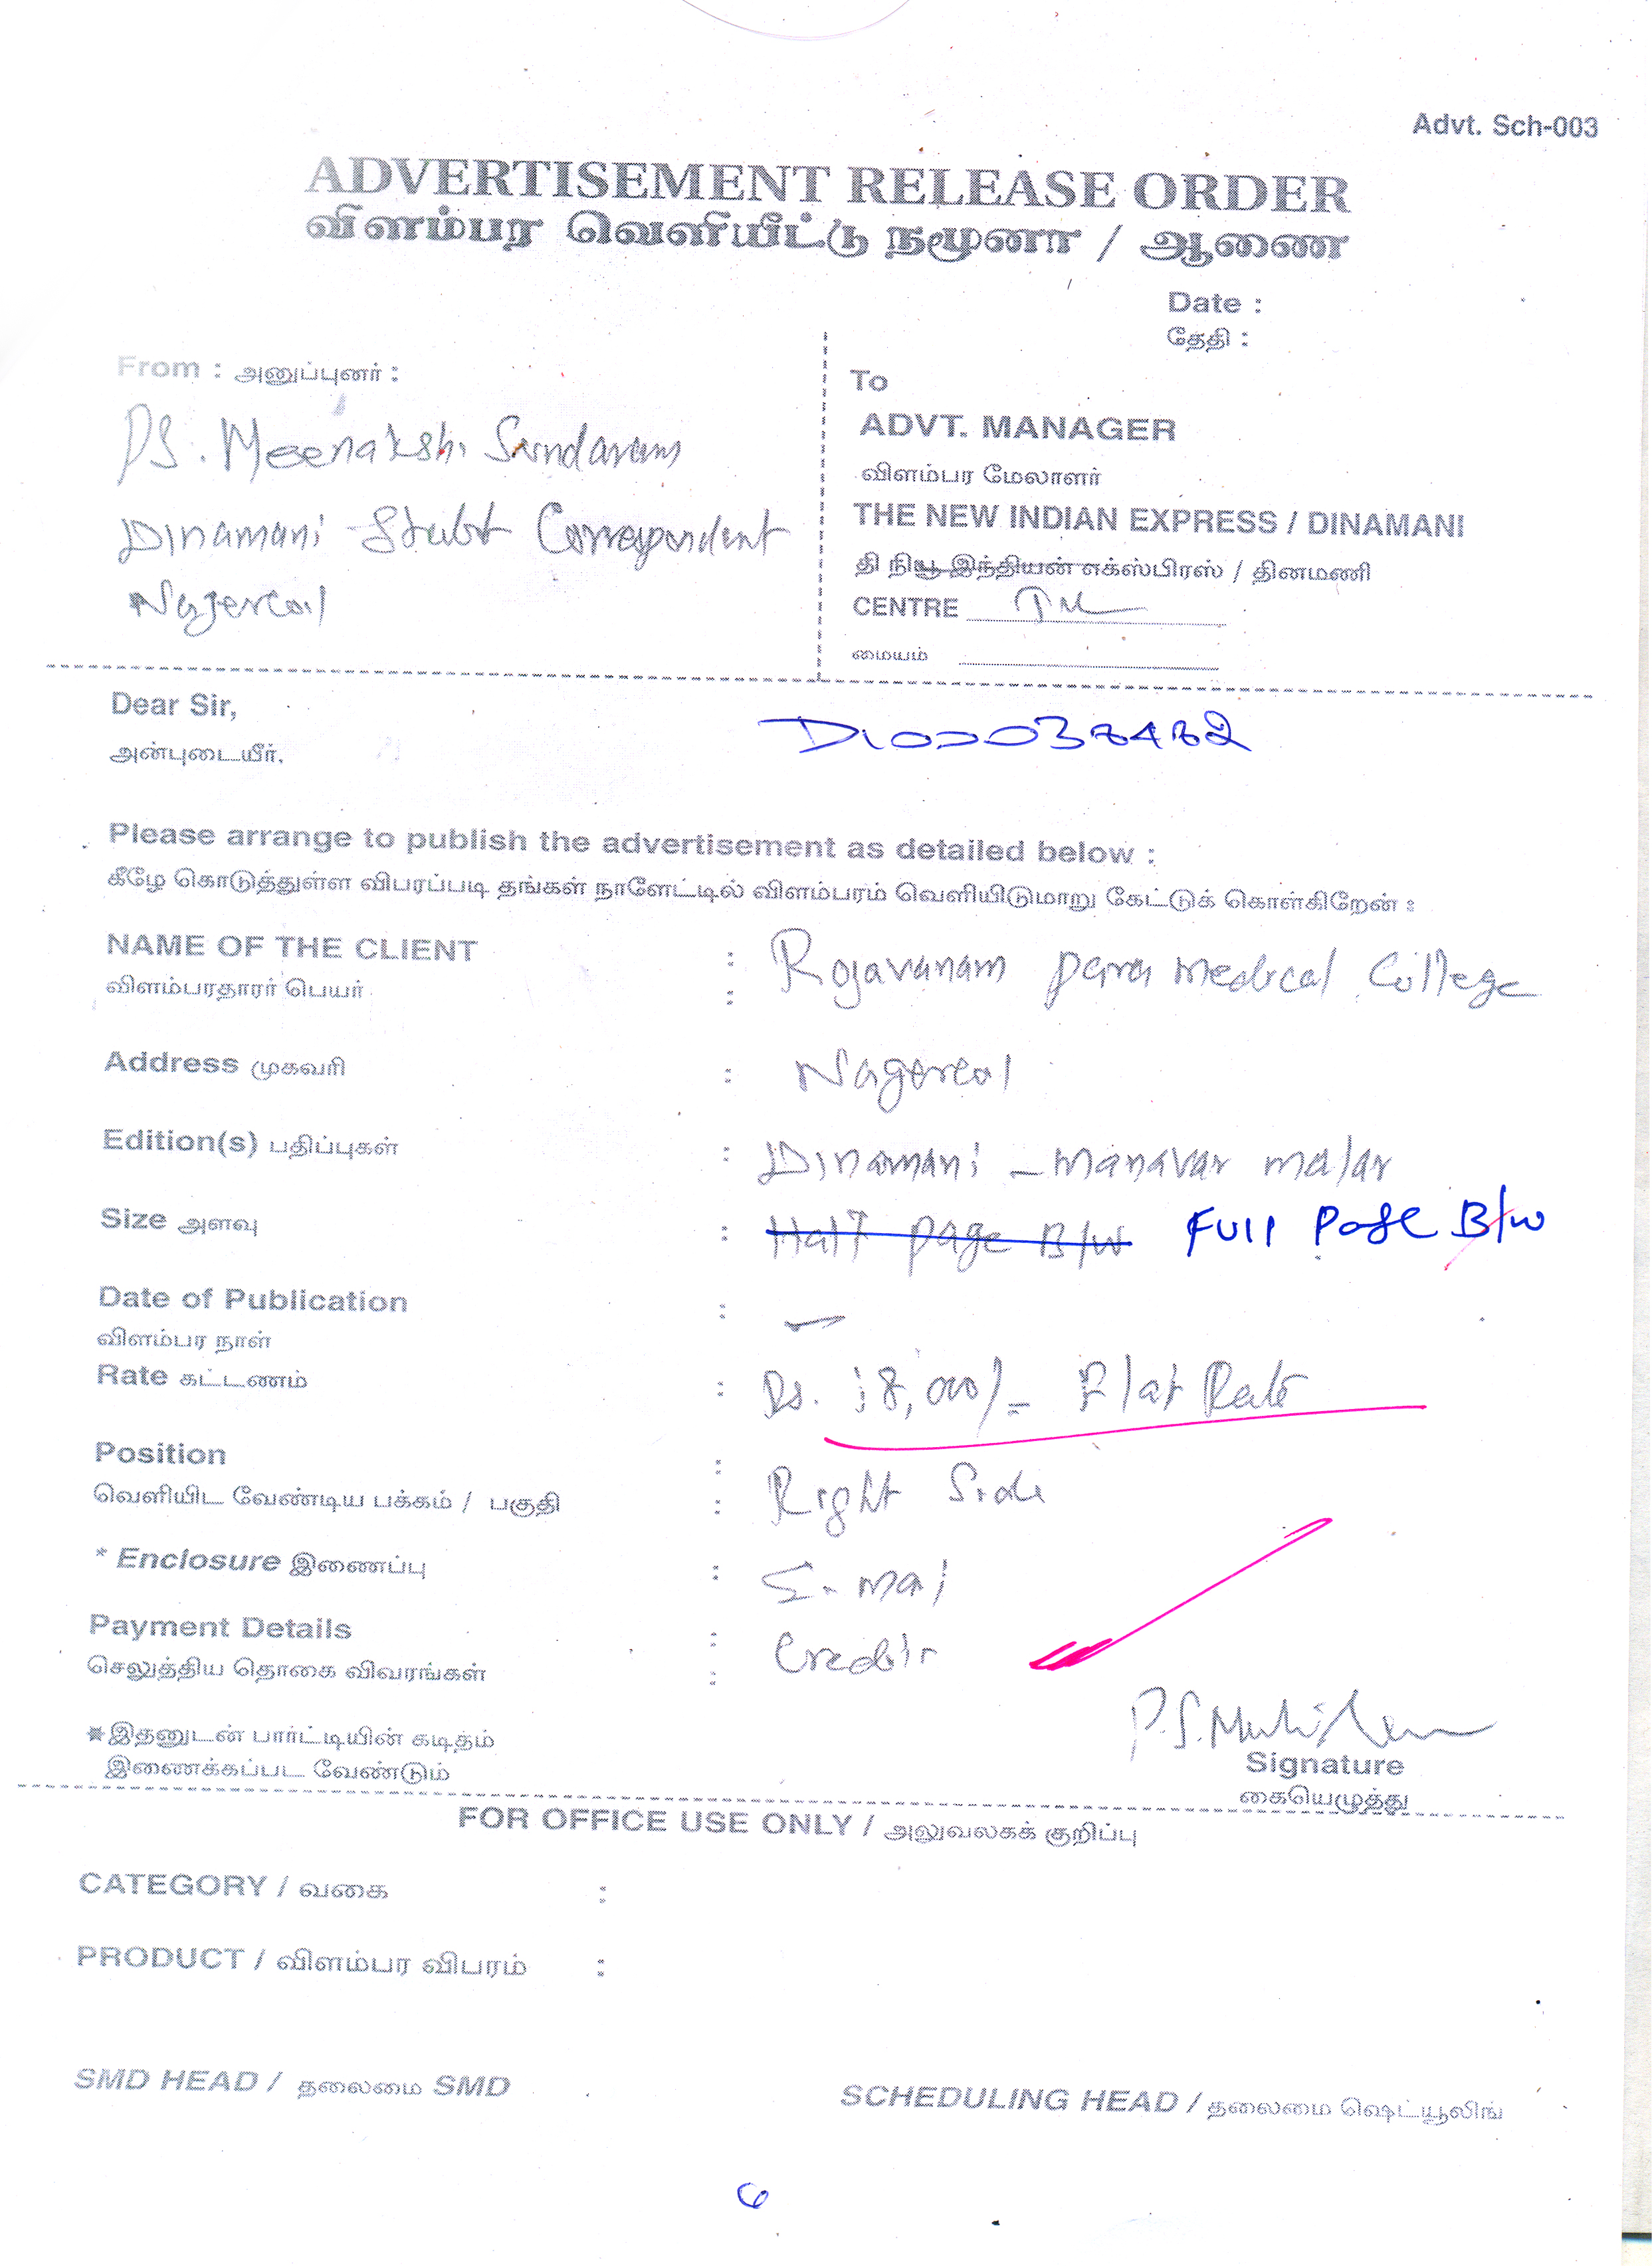 Advt. Sch-003
ADVERTISEMENT RELEASE ORDER
விளம்பர வெளியீட்டு நமூனா / ஆணை
Date :
தேதி :
From : அனுப்புனர் :
PS. Meenakshi Sundaram
Dinamani Correspondent
Nagercoil
To
ADVT. MANAGER
விளம்பர மேலாளர்
THE NEW INDIAN EXPRESS / DINAMANI
தி நியூ இந்தியன் எக்ஸ்பிரஸ் / தினமணி
CENTRE
மையம்
Dear Sir,
அன்புடையீர்,
Please arrange to publish the advertisement as detailed below :
கீழே கொடுத்துள்ள விபரப்படி தங்கள் நாளேட்டில் விளம்பரம் வெளியிடுமாறு கேட்டுக் கொள்கிறேன் :
NAME OF THE CLIENT : Rojavanam para medical College
விளம்பரதாரர் பெயர் :
Address முகவரி : Nagercoil
Edition(s) பதிப்புகள் : Dinamani - manavar malar
Size அளவு : Half page B/w Full Page B/w
Date of Publication :
விளம்பர நாள்
Rate கட்டணம் : Rs. 18,000/= Flat Rate
Position : Right Side
வெளியிட வேண்டிய பக்கம் / பகுதி :
* Enclosure இணைப்பு : E-mail
Payment Details : Credit
செலுத்திய தொகை விவரங்கள் :
★இதனுடன் பார்ட்டியின் கடிதம்
இணைக்கப்பட வேண்டும்
Signature
கையெழுத்து
FOR OFFICE USE ONLY / அலுவலகக் குறிப்பு
CATEGORY / வகை :
PRODUCT / விளம்பர விபரம் :
SMD HEAD / தலைமை SMD
SCHEDULING HEAD / தலைமை ஷெட்யூலிங்